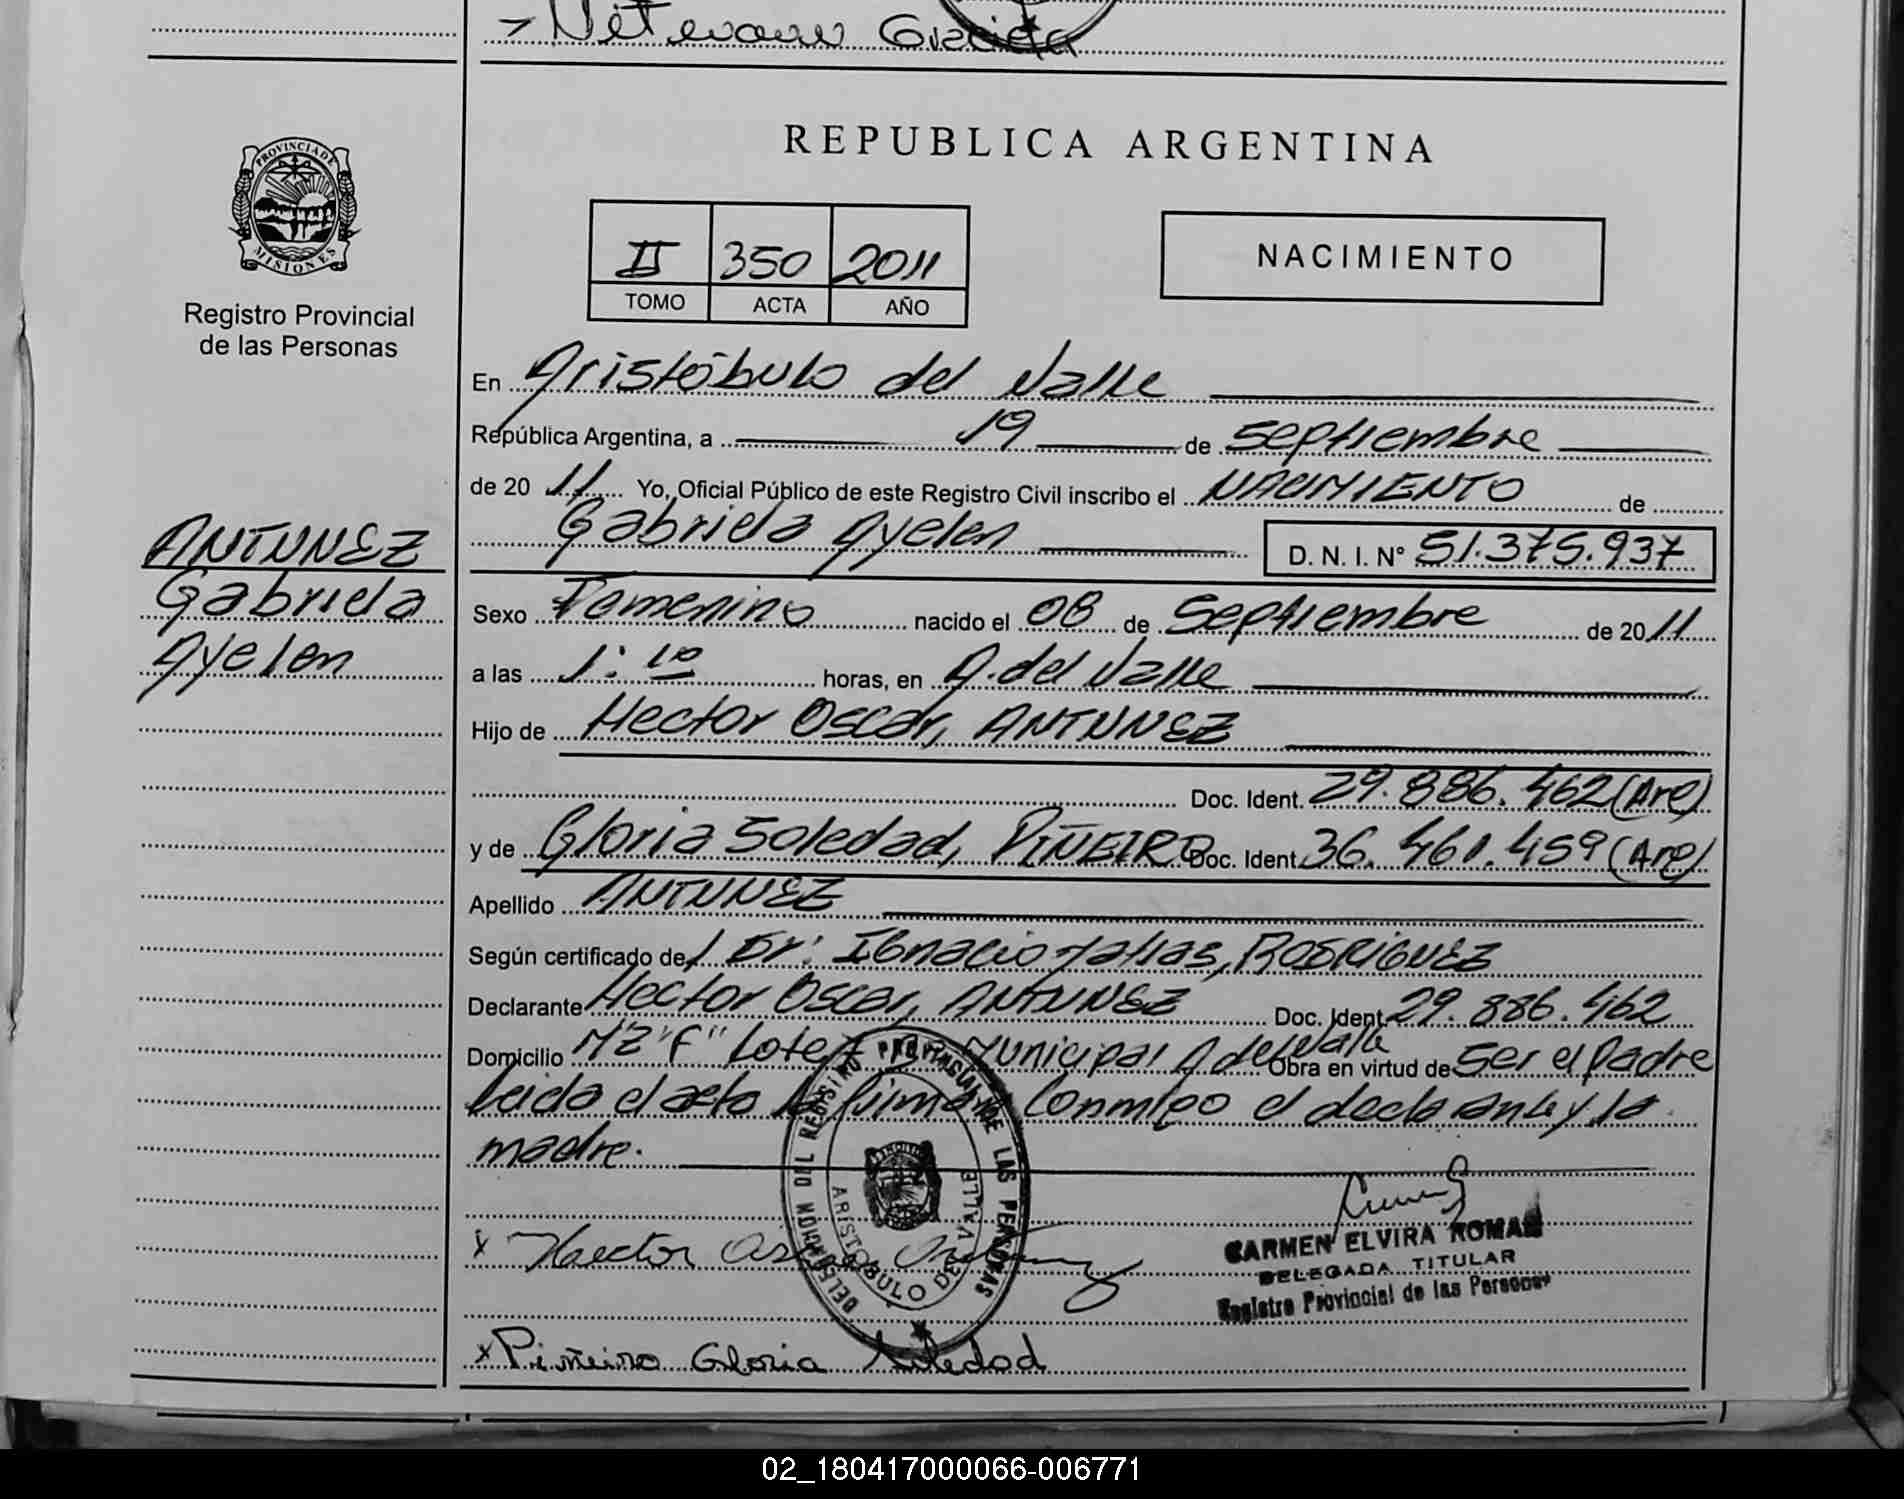 > Netevaner Graciela
PROVINCIA DE
MISIONES
Registro Provincial
de las Personas
REPUBLICA ARGENTINA
II 350 2011
TOMO ACTA AÑO
NACIMIENTO
En Aristóbulo del Valle
República Argentina, a 19 de Septiembre
de 2011 Yo, Oficial Público de este Registro Civil inscribo el NACIMIENTO de
Gabriela Ayelen D. N. I. Nº 51.375.937
ANTUNEZ
Gabriela
Ayelen
Sexo Femenino nacido el 08 de Septiembre de 2011
a las 1:10 horas, en A. del Valle
Hijo de Hector Oscar, ANTUNEZ
Doc. Ident. 29.886.462 (Arg)
y de Gloria Soledad, PIÑEIRO Doc. Ident. 36.461.459 (Arg)
Apellido ANTUNEZ
Según certificado del Dr: Ignacio Matias, RODRIGUEZ
Declarante Hector Oscar, ANTUNEZ Doc. Ident. 29.886.462
Domicilio MZ "F" Lote Municipal A del Valle Obra en virtud de Ser el Padre
Leida el acta la firman Conmigo el declarante y la
madre.
DELEGACION DEL REGISTRO PROVINCIAL DE LAS PERSONAS
ARISTOBULO DEL VALLE
CARMEN ELVIRA ROMAN
DELEGADA TITULAR
Registro Provincial de las Personas
x Hector Oscar Antunez
x Piñeiro Gloria Soledad
02_180417000066-006771